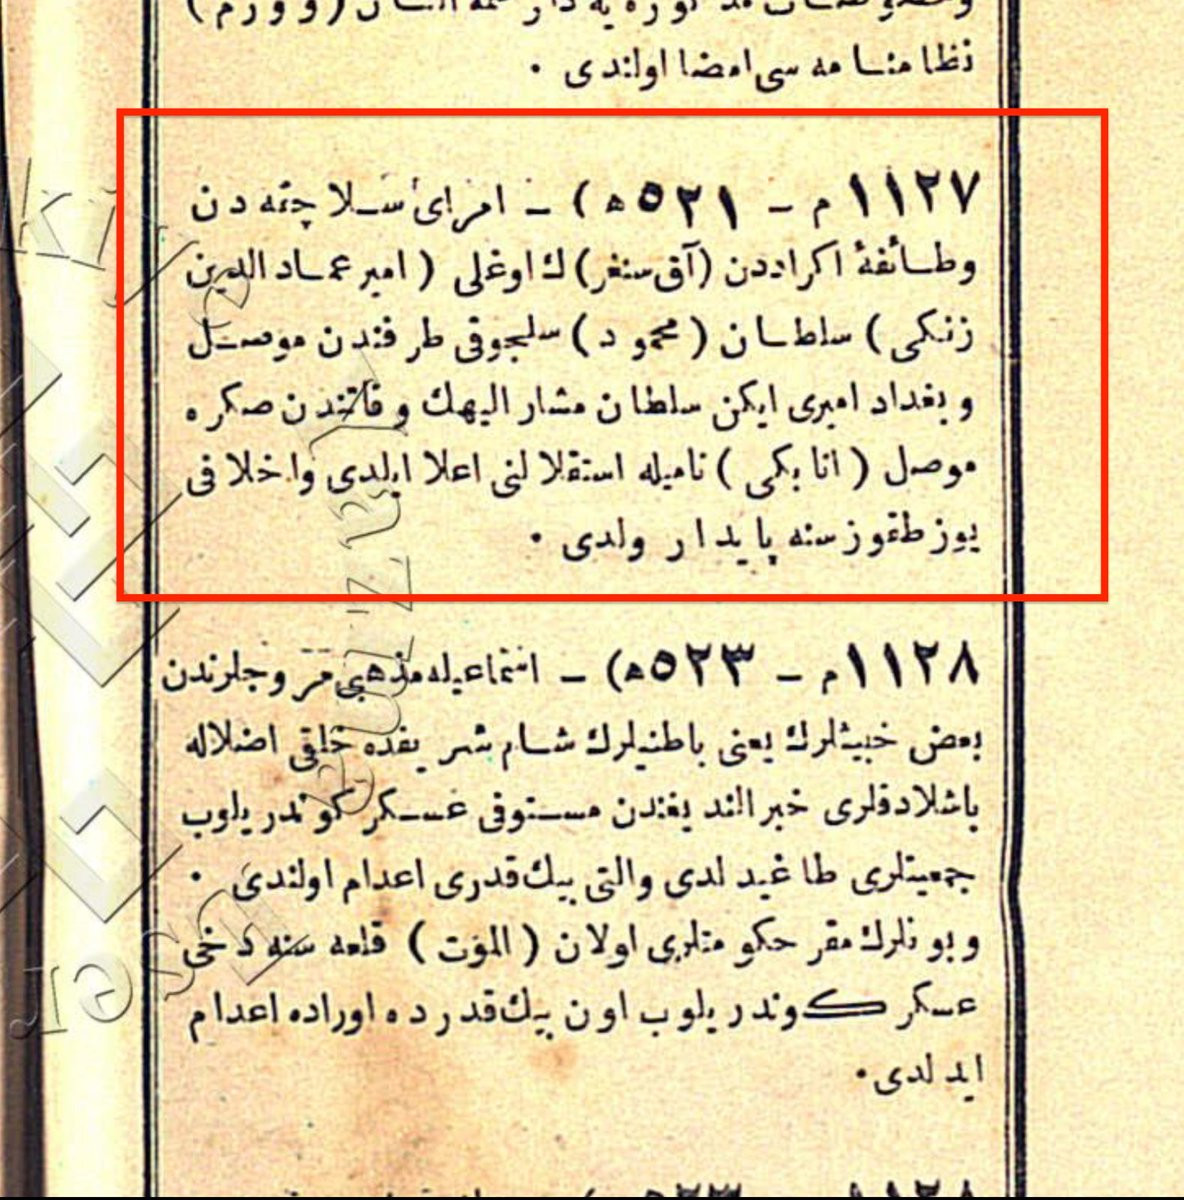 نظامنامه سی امضا اولندی ٠
١١٢٧ م – ٥٢١ ه) – امرای سلاجقه دن
وطائفهٔ اکراددن (آق سنغر) ك اوغلی ( امیر عماد الدین
زنکی ) سلطان ( محمود ) سلجوقی طرفندن موصل
و بغداد امیری ایکن سلطان مشار الیهك وفاتندن صکره
موصل ( اتابکی ) نامیله استقلالنی اعلا ایلدی واخلافی
یوز طقوز سنه پایدار ولدی ٠
١١٢٨ م – ٥٢٣ ه) – اسماعیله مذهبی مروجلرندن
بعض خبیثلرك یعنی باطنیلرك شام شریفده خلقی اضلاله
باشلادقلری خبر الندیغندن مستوفی عسکر کوندریلوب
جمعیتلری طاغیدلدی والتی بیك قدری اعدام اولندی ٠
و بونلرك مقر حکومتلری اولان ( الموت ) قلعه سنه دخی
عسکر كوندریلوب اون بیك قدر ده اوراده اعدام
ایدلدی ٠